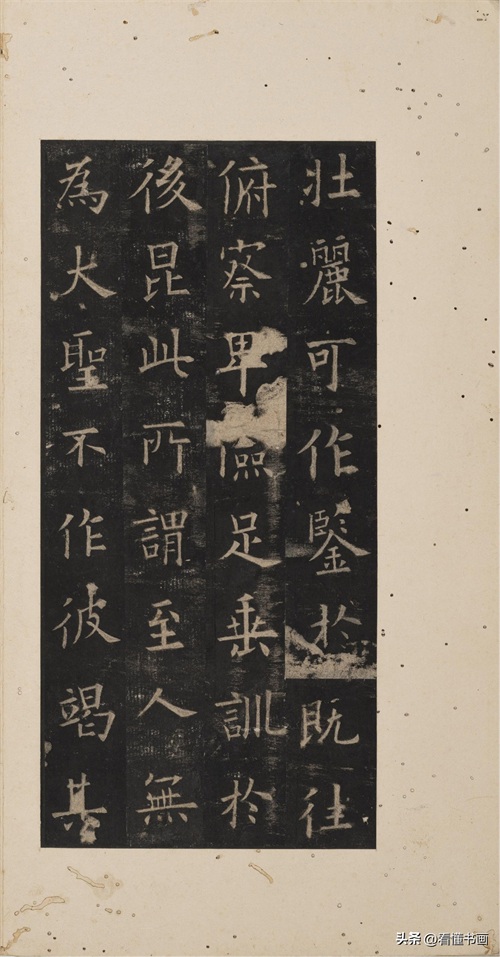 壯麗可作鑒於既往
俯察卑儉足垂訓於
後昆此所謂至人無
為大聖不作彼竭其
头条 @看懂书画